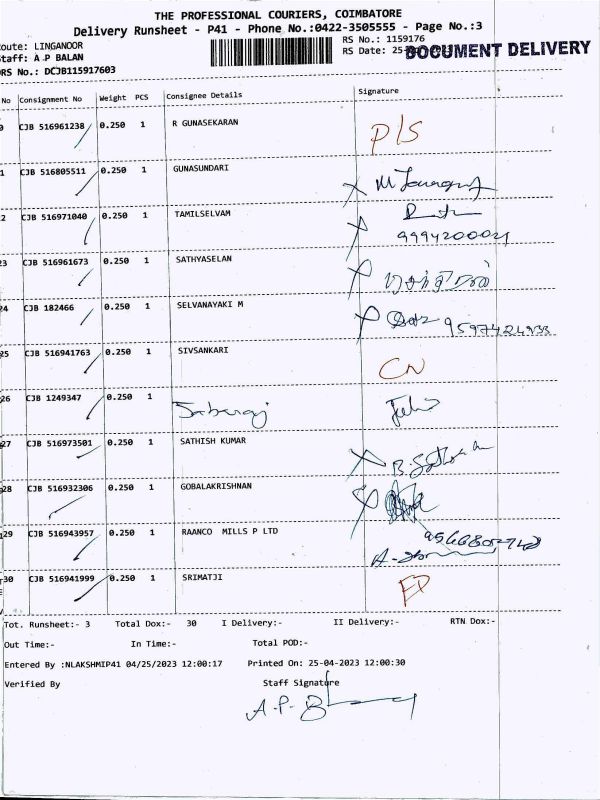 THE PROFESSIONAL COURIERS, COIMBATORE
Delivery Runsheet - P41 - Phone No.:0422-3505555 - Page No.:3
oute: LINGANOOR RS No.: 1159176
taff: A P BALAN RS Date: 25- DOCUMENT DELIVERY
RS No.: DCJB115917603
No Consignment No Weight PCS Consignee Details Signature
0 CJB 516961238 0.250 1 R GUNASEKARAN P/S
1 CJB 516805511 0.250 1 GUNASUNDARI
2 CJB 516971040 0.250 1 TAMILSELVAM
9994200021
23 CJB 516961673 0.250 1 SATHYASELAN
24 CJB 182466 0.250 1 SELVANAYAKI M
25 CJB 516941763 0.250 1 SIVSANKARI CN
26 CJB 1249347 0.250 1 Sabaraj
27 CJB 516973501 0.250 1 SATHISH KUMAR
28 CJB 516932306 0.250 1 GOBALAKRISHNAN
29 CJB 516943957 0.250 1 RAANCO MILLS P LTD
30 CJB 516941999 0.250 1 SRIMATJI
Tot. Runsheet:- 3 Total Dox:- 30 I Delivery:- II Delivery:- RTN Dox:-
Out Time:- In Time:- Total POD:-
Entered By :NLAKSHMIP41 04/25/2023 12:00:17 Printed On: 25-04-2023 12:00:30
Verified By Staff Signature
A.P.